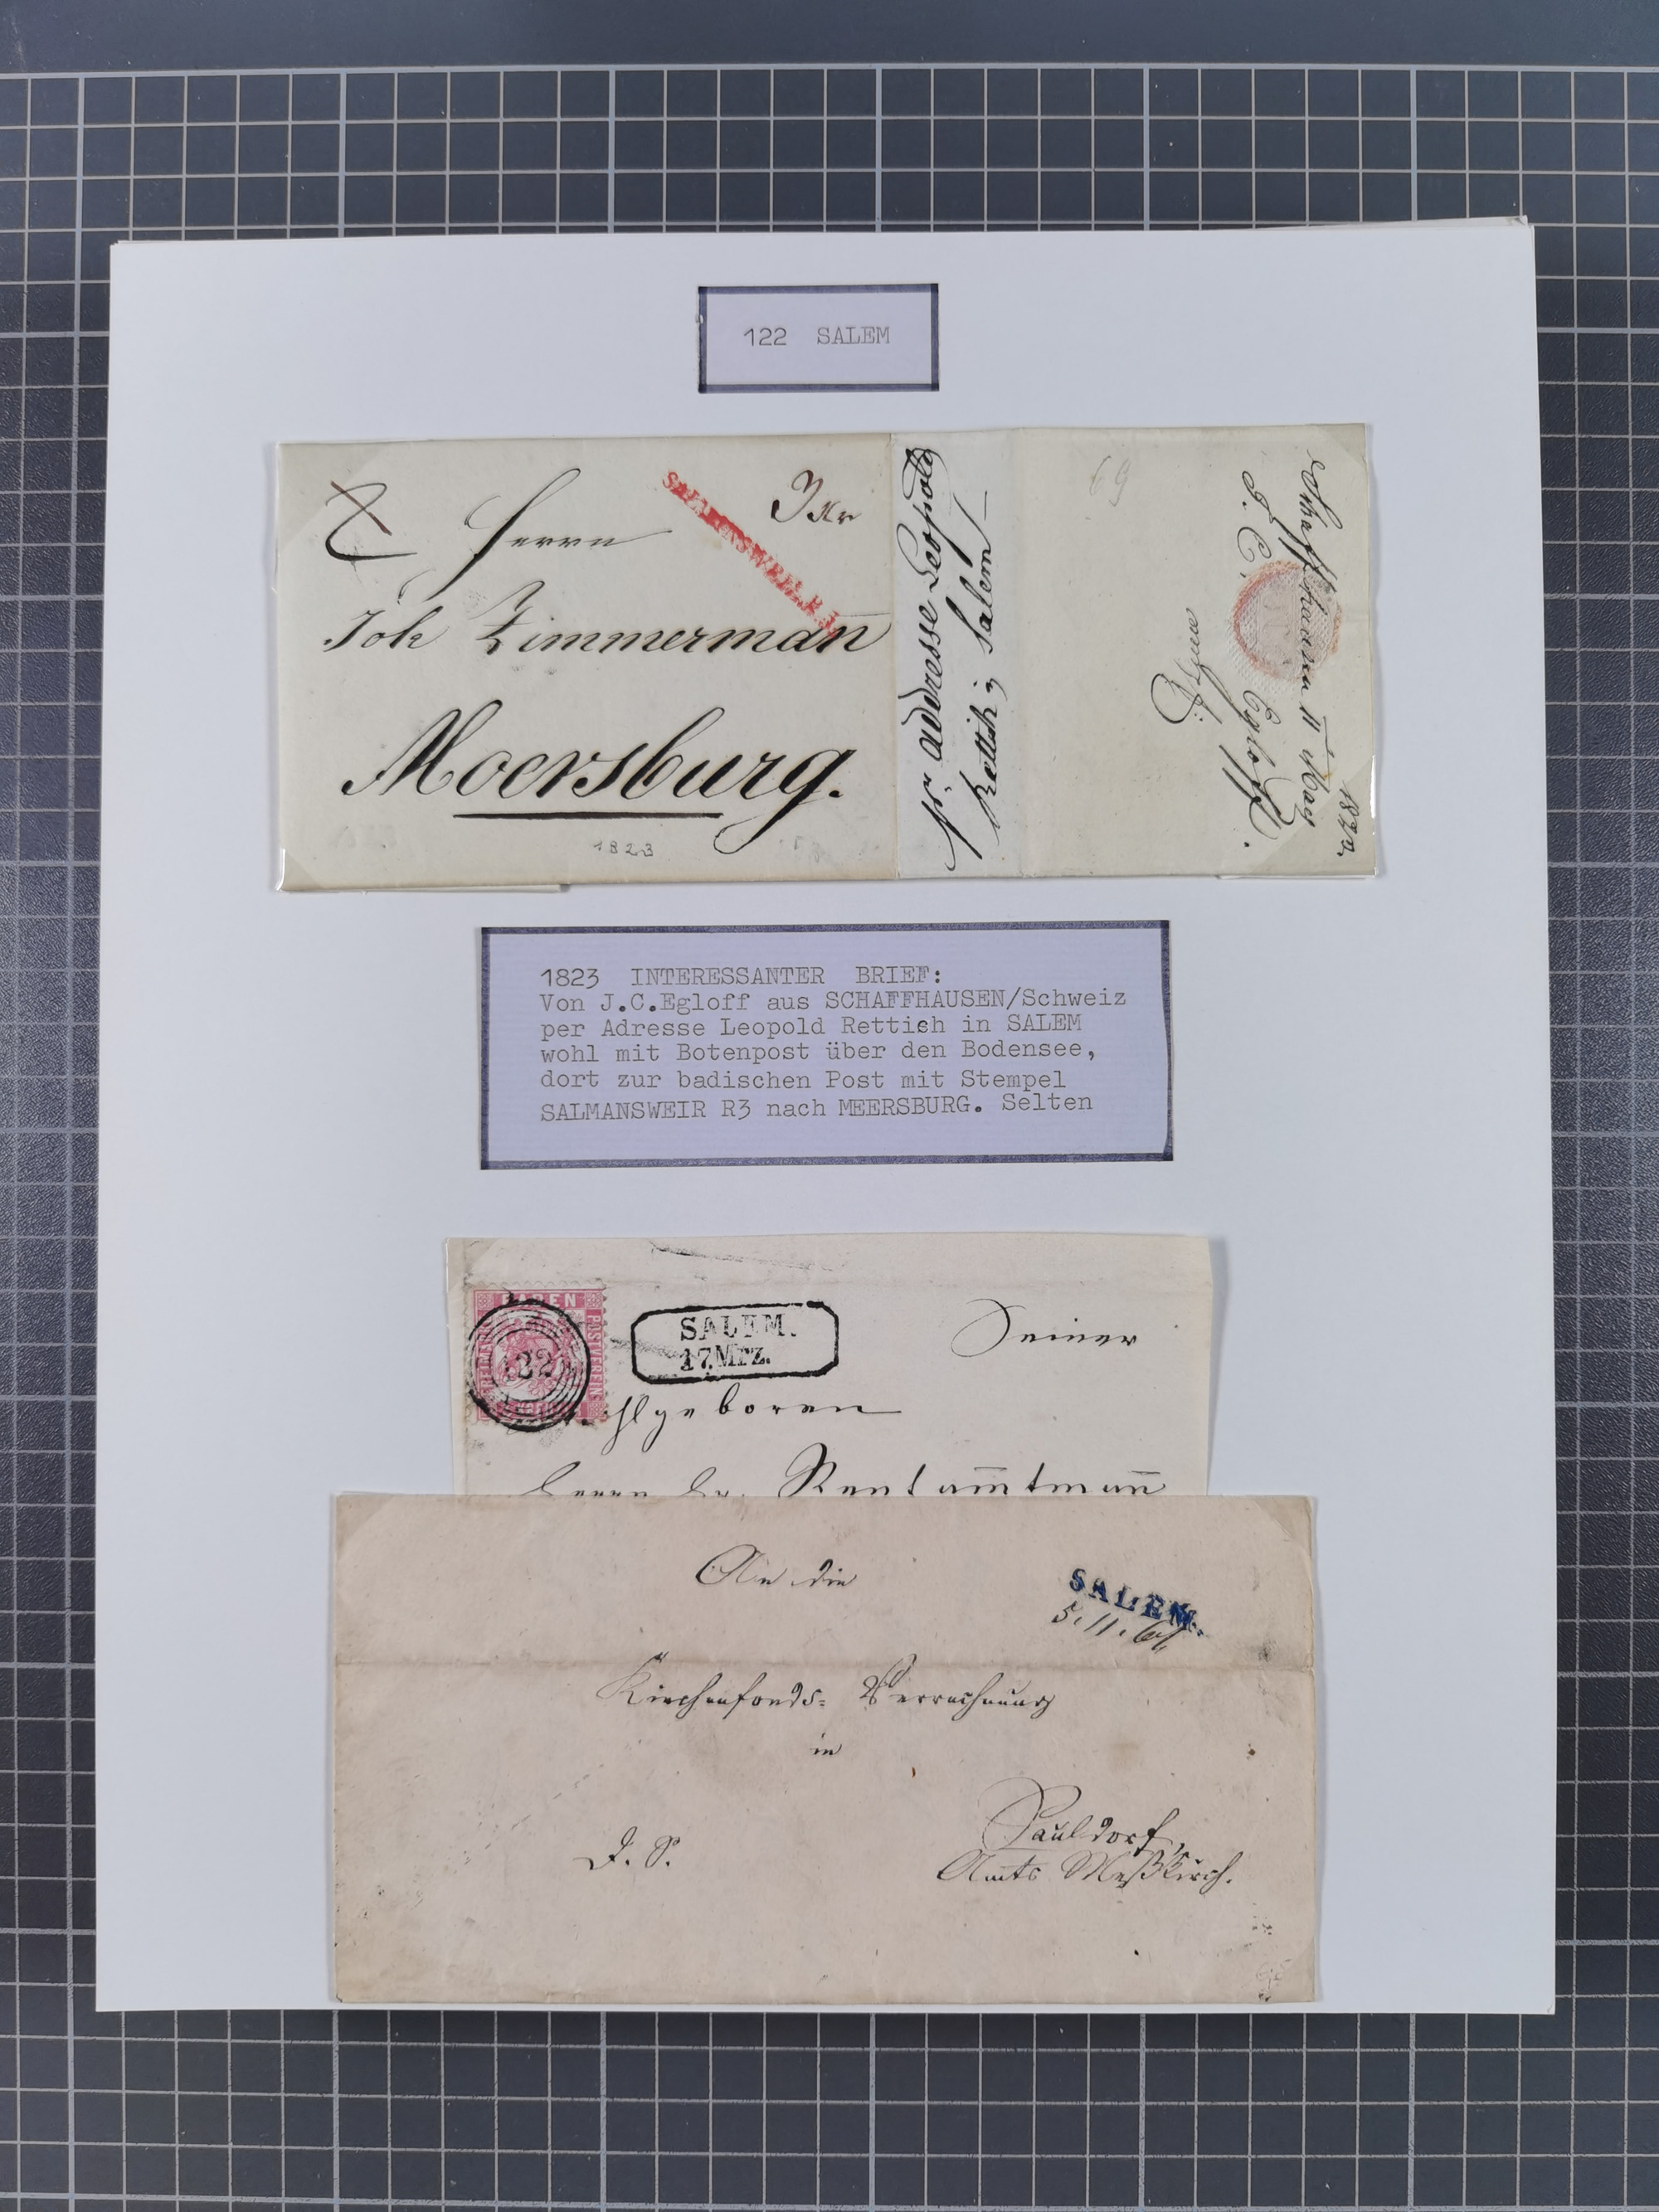 122 SALEM
SALMANSWEIL.R.3.
3 Kr
Herrn
Joh Zimmerman
Moersburg.
1823
pr. addresse Leopold
Rettich in Salem
69
Schaffhausen 11 May
J. C. Egloff.
1823 INTERESSANTER BRIEF:
Von J.C.Egloff aus SCHAFFHAUSEN/Schweiz
per Adresse Leopold Rettich in SALEM
wohl mit Botenpost über den Bodensee,
dort zur badischen Post mit Stempel
SALMANSWEIR R3 nach MEERSBURG. Selten
BADEN
POSTVEREIN
122
SALEM.
17.Mrz.
Seiner
hlgeboren
Herrn Gr. Rentamtmann
An die
SALEM.
5.11.61
Kirchenfonds-Verrechnung
in
D. S.
Sauldorf,
Amts Meßkirch.